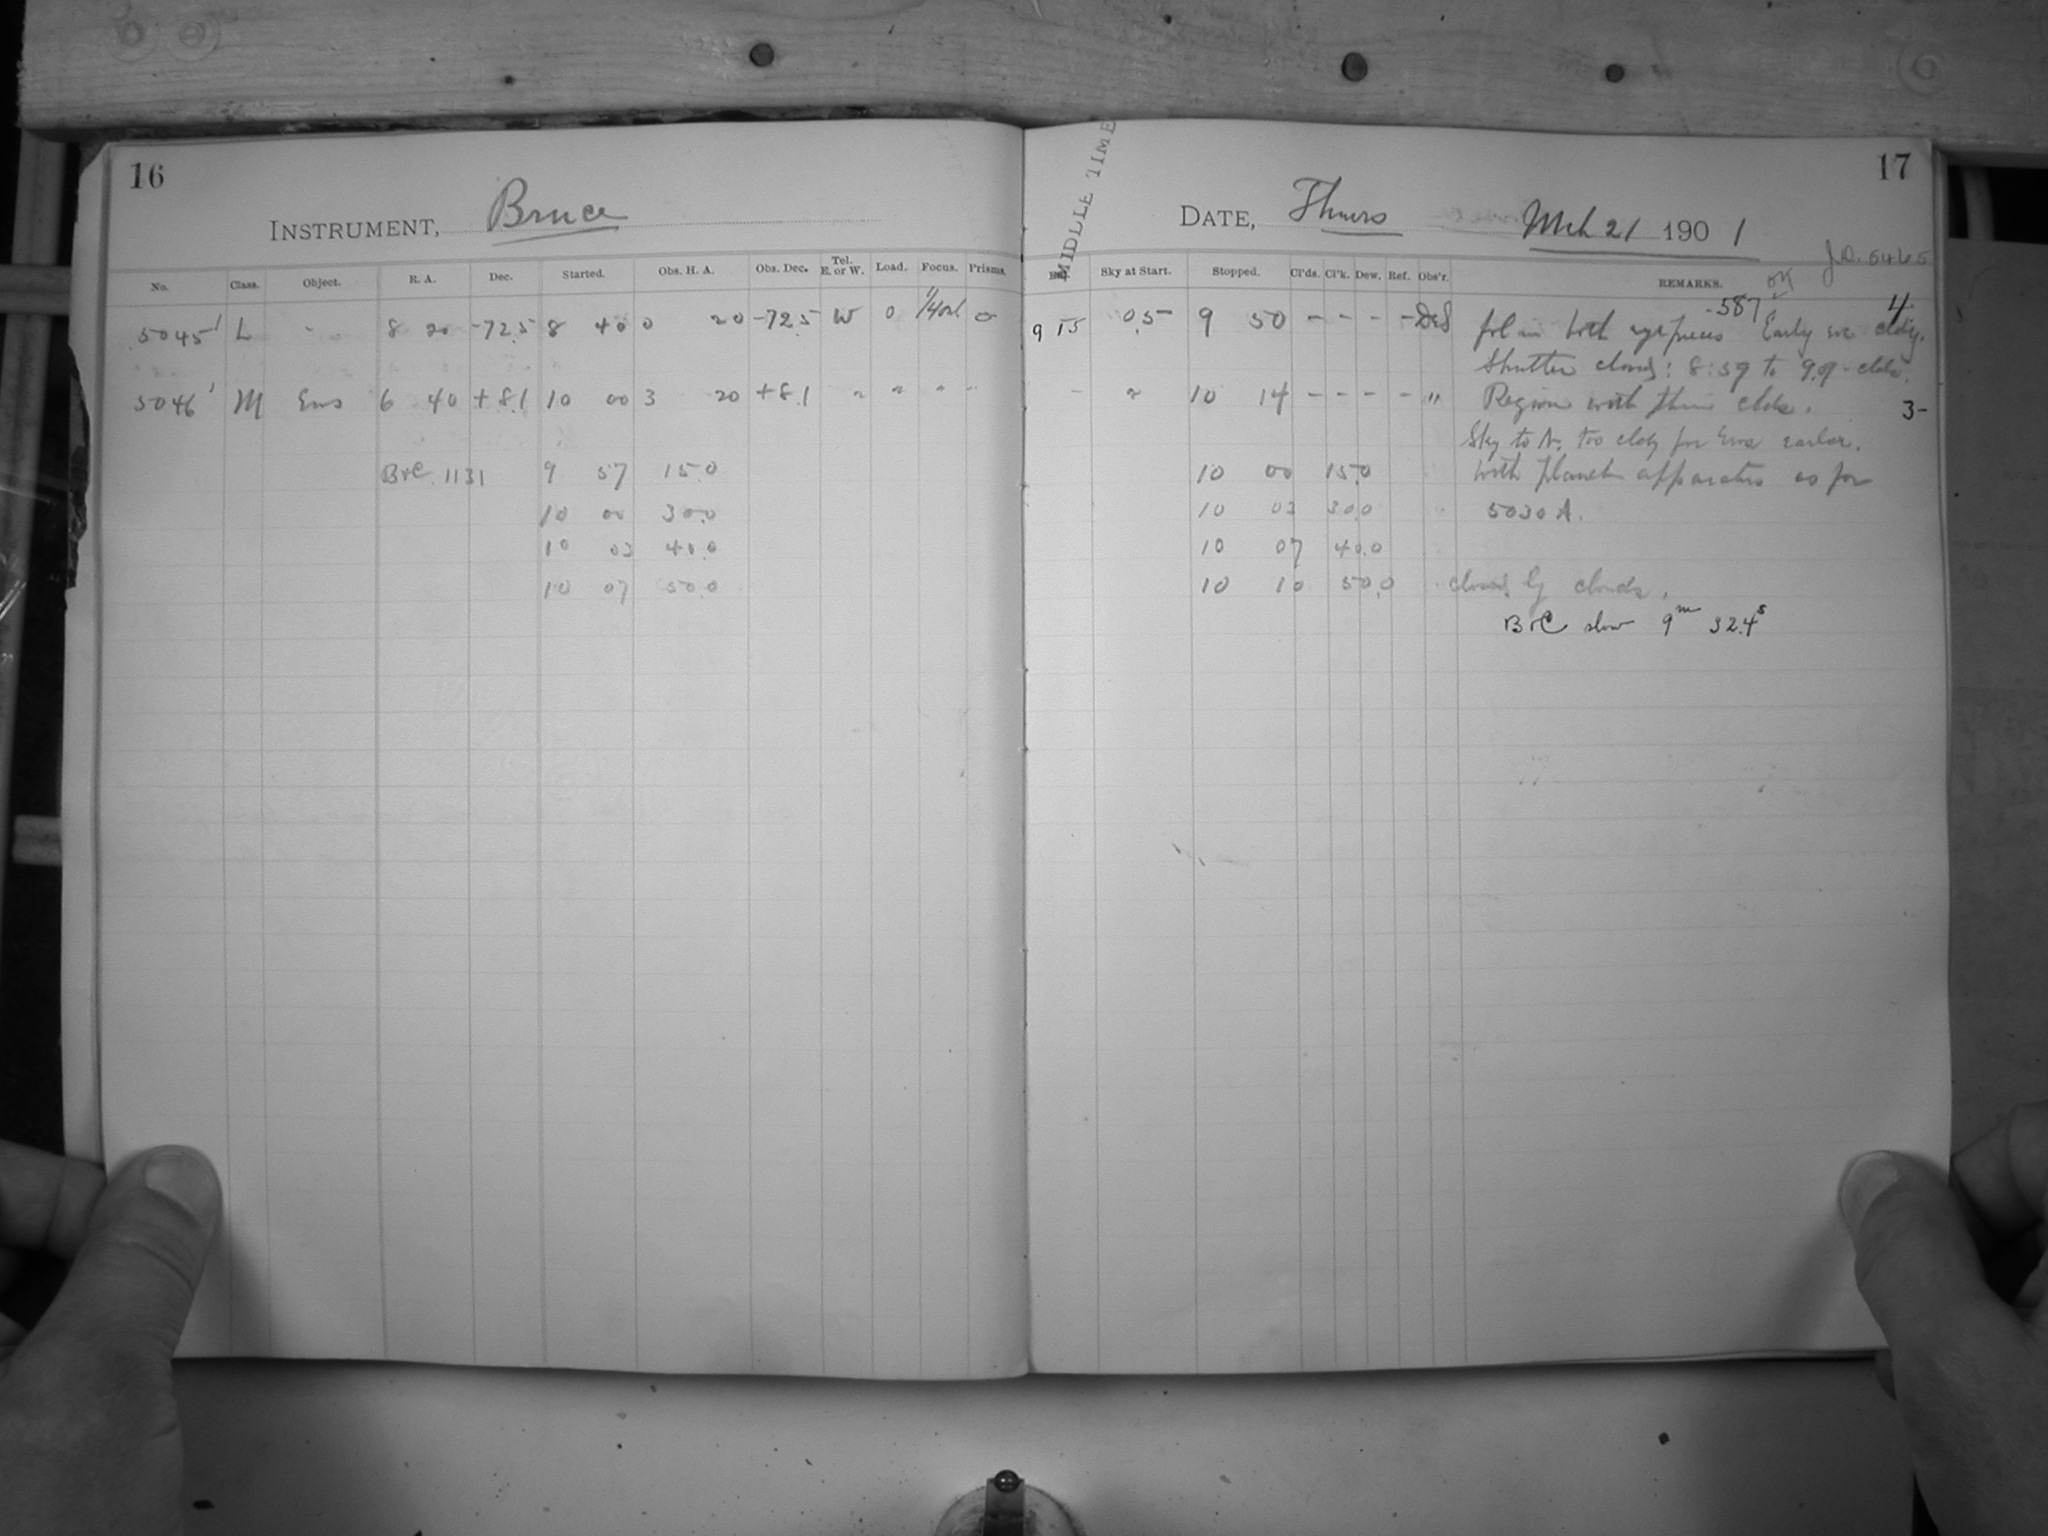 16
INSTRUMENT, Bruce
No. Class. Object. R. A. Dec. Started. Obs. H. A. Obs. Dec. Tel. E. or W. Load. Focus. Prisms.
5045 L 8 20 -72.5 8 40 0 20 -72.5 W 0
5046 M Eros 6 40 +8.1 10 00 3 20 +8.1 " " " "
B&C 1131 9 57 15.0
10 00 30.0
10 03 40.0
10 07 50.0
MIDDLE TIME
17
DATE, Thurs Mch 21 1901
J.D. 5465
Sky at Start. Stopped. Cl'ds. Cl'k. Dew. Ref. Obs'r. REMARKS.
9 15 0.5 9 50 - - - -
587 OK 4
with eyepieces Early eve cldy.
Shutter closed: 8:59 to 9.9 - clds.
- " 10 14 - - - - " Region with thin clds. 3-
Sky to N. too cldy for Eros earlier.
10 00 15.0 With planet apparatus as for
10 03 30.0 5030 A.
10 07 40.0
10 10 50.0 closed by clouds.
B&C slow 9m 32.4s